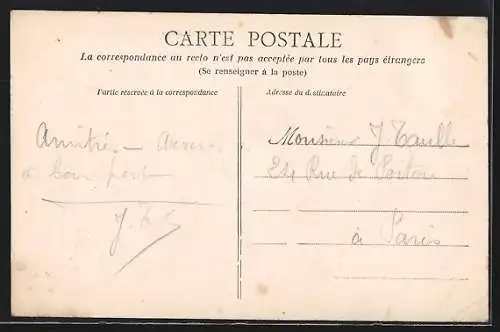 CARTE POSTALE
La correspondance au recto n'est pas acceptée par tous les pays étrangers
(Se renseigner à la poste)
Partie réservée à la correspondance
Adresse du destinataire
Amitiés —
à bon port
Monsieur J.
24 Rue de Poitou
à Paris